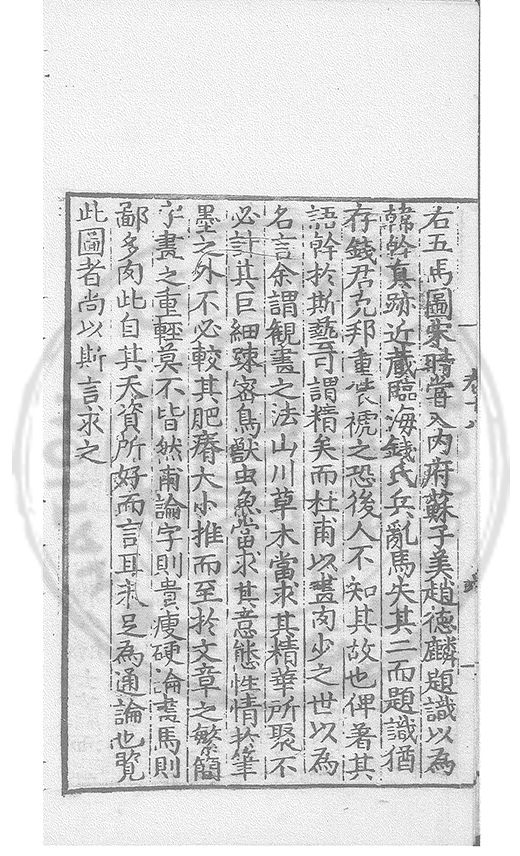 右五馬圖宋時嘗入內府蘇子美趙德麟題識以為
韓幹真跡近藏臨海錢氏兵亂馬失其二而題識猶
存錢君克邦重裝褫之恐後人不知其故也俾著其
語幹於斯藝可謂精矣而杜甫以畫肉少之世以為
名言余謂觀畫之法山川草木當求其精華所聚不
必計其巨細疎密鳥獸虫魚當求其意態性情於筆
墨之外不必較其肥瘠大小推而至於文章之繁簡
字畫之重輕莫不皆然甫論字則貴瘦硬論畫馬則
鄙多肉此自其天資所好而言耳未足為通論也覽
此圖者尚以斯言求之